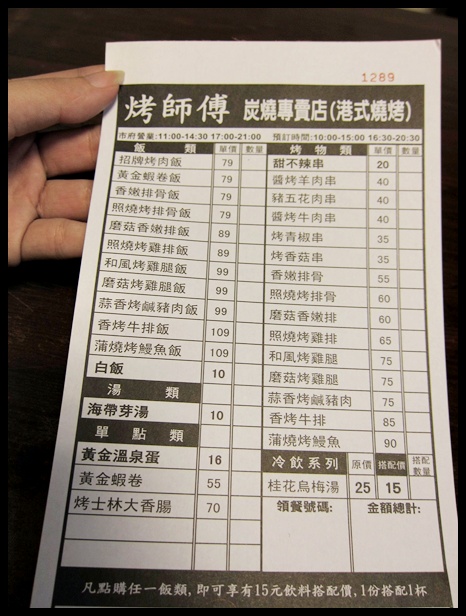 1289
烤師傅 炭燒專賣店(港式燒烤)
市府營業:11:00-14:30 17:00-21:00 預訂時間:10:00-15:00 16:30-20:30
飯類 單價 數量
招牌烤肉飯 79
黃金蝦卷飯 79
香嫩排骨飯 79
照燒烤排骨飯 79
磨菇香嫩排飯 89
照燒烤雞排飯 89
和風烤雞腿飯 99
磨菇烤雞腿飯 99
蒜香烤鹹豬肉飯 99
香烤牛排飯 109
蒲燒烤鰻魚飯 109
白飯 10
湯類
海帶芽湯 10
單點類
黃金溫泉蛋 16
黃金蝦卷 55
烤士林大香腸 70
烤物類 單價 數量
甜不辣串 20
醬烤羊肉串 40
豬五花肉串 40
醬烤牛肉串 40
烤青椒串 35
烤香菇串 35
香嫩排骨 55
照燒烤排骨 60
磨菇香嫩排 60
照燒烤雞排 65
和風烤雞腿 75
磨菇烤雞腿 75
蒜香烤鹹豬肉 75
香烤牛排 85
蒲燒烤鰻魚 90
冷飲系列 原價 搭配價 搭配數量
桂花烏梅湯 25 15
領餐號碼: 金額總計:
凡點購任一飯類,即可享有15元飲料搭配價,1份搭配1杯